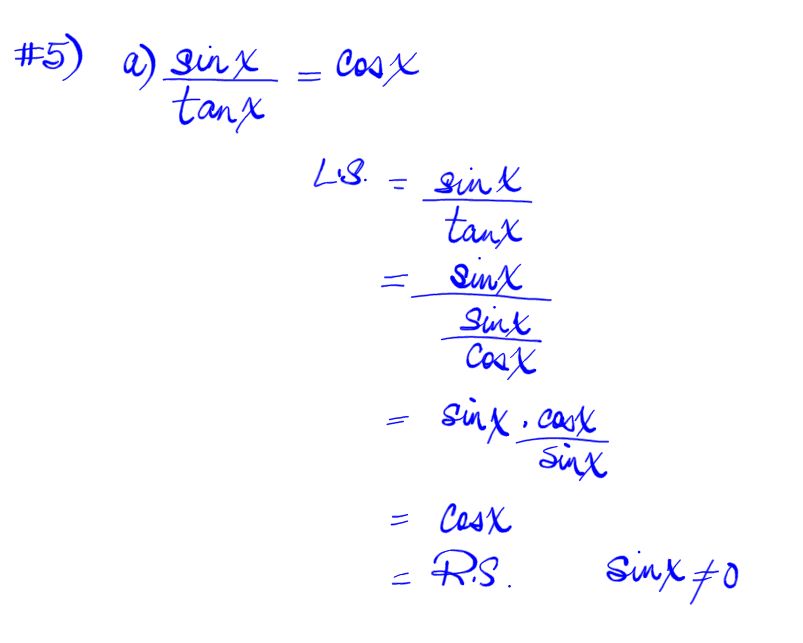 #5) a) sinx/tanx = cosx
L.S. = sinx/tanx
= sinx/(sinx/cosx)
= sinx · cosx/sinx
= cosx
= R.S. sinx ≠ 0